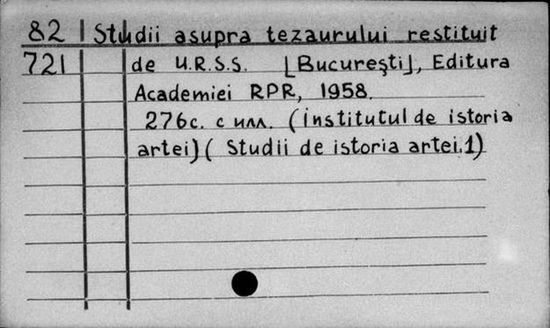 82 Studii asupra tezaurului restituit
721 de U.R.S.S. [Bucureşti], Editura
Academiei RPR, 1958.
276с. с илл. (institutul de istoria
artei)( Studii de istoria artei.1)